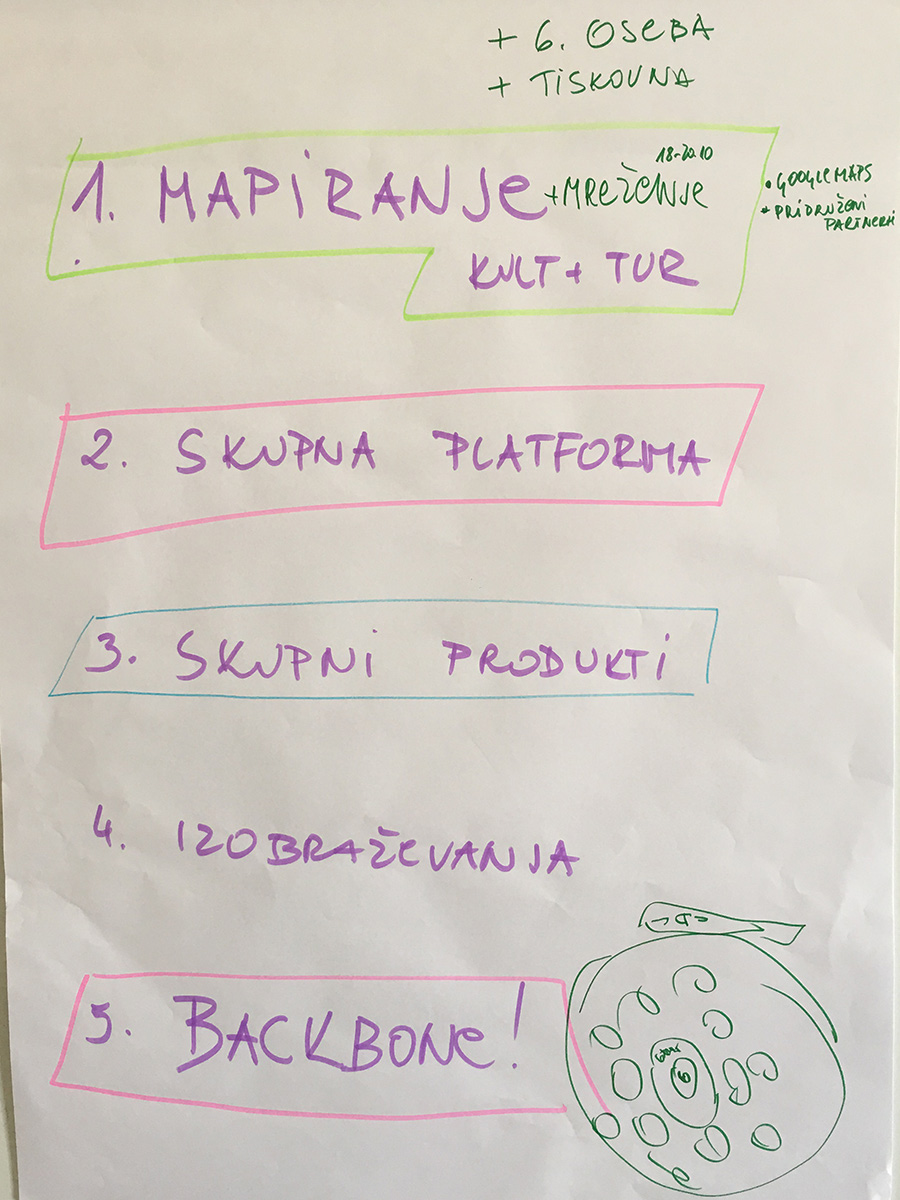 + 6. OSEBA
+ TISKOVNA
18-20.10
1. MAPIRANJE + MREŽENJE
KULT + TUR
• GOOGLE MAPS
* PRIDRUŽENI
PARTNERJI
2. SKUPNA PLATFORMA
3. SKUPNI PRODUKTI
4. IZOBRAŽEVANJA
5. BACKBONE!